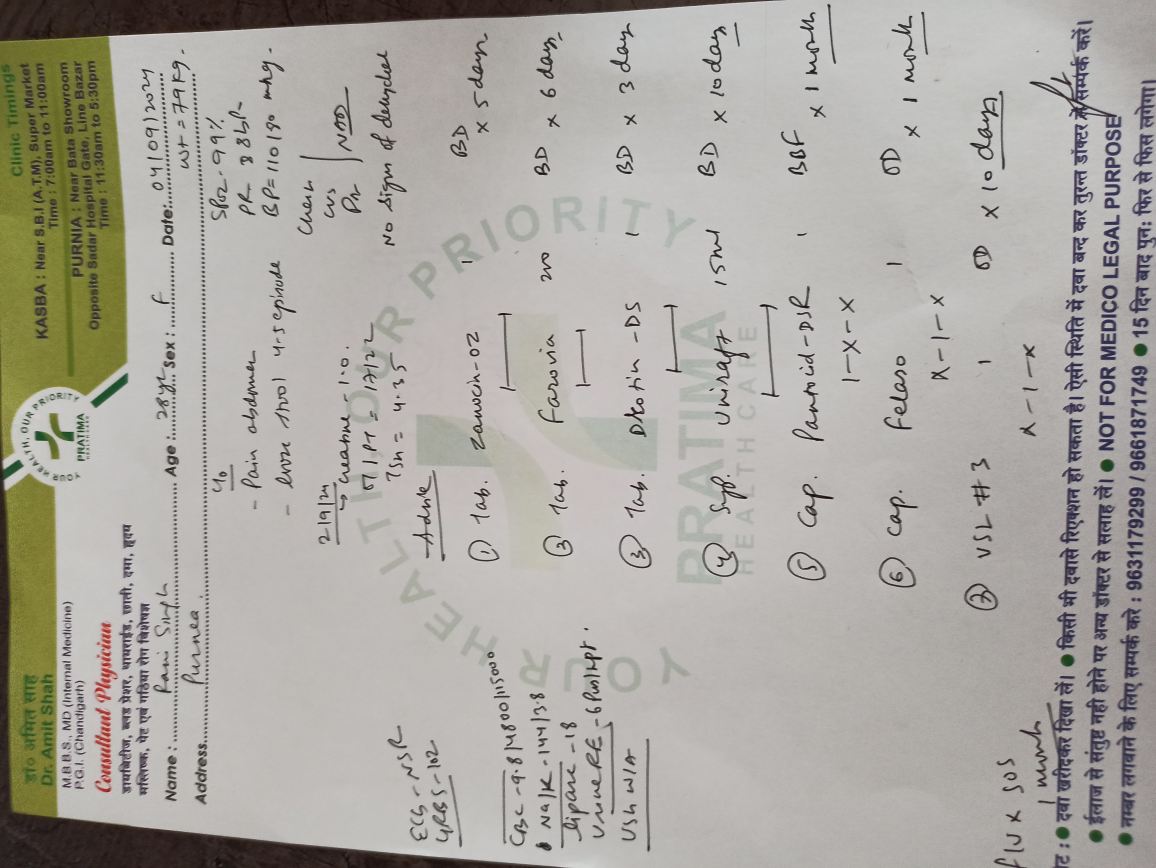 डा० अमित साह
Dr. Amit Shah
M.B.B.S., MD (Internal Medicine)
P.G.I. (Chandigarh)
Consultant Physician
डायबिटीज, ब्लड प्रेशर, थायराईड, छाती, दमा, हृदय
मस्तिष्क, पेट एवं गठिया रोग विशेषज्ञ
YOUR HEALTH, OUR PRIORITY
PRATIMA
HEALTH CARE
Clinic Timings
KASBA : Near S.B.I (A.T.M), Super Market
Time : 7:00am to 11:00am
PURNIA : Near Bata Showroom
Opposite Sadar Hospital Gate, Line Bazar
Time : 11:30am to 5:30pm
Name : Rani Singh Age : 28yr Sex : F Date: 04/09/2024
Address Purnea. Wt = 79 kg.
c/o
- Pain abdomen
- loose stool 4-5 episode
SPO2 - 99%
PR 88bpm
BP = 110/80 mmhg.
Chest
CVS
NAD
No signs of dehydration
2/9/24
Creatine - 1.0.
OT/PT = 17/22
TSH = 4.35
ECG - NSR
GRBS - 102
CBC - 9.8/4800/15000
Na/K - 144/3.8
lipase - 18
Urine RE - 6 Pus/hpf.
USG W/A
Advice
① Tab. Zanocin-OZ 1 BD x 5 days
② Tab. Farovia 200 BD x 6 days
③ Tab. Drotin-DS 1 BD x 3 days
④ Syp. Uniraft 15ml BD x 10 days
⑤ Cap. Pantocid-DSR 1 BBF x 1 month
1-x-x
⑥ Cap. 1 OD x 1 month
x-1-x
⑦ VSL #3 1 OD x 10 days
x-1-x
YOUR HEALTH OUR PRIORITY
PRATIMA
HEALTH CARE
f/u x SOS
1 month
दवा खरीदकर दिखा लें। ● किसी भी दवासे रिएक्शन हो सकता है। ऐसी स्थिति में दवा बन्द कर तुरन्त डॉक्टर से सम्पर्क करें।
● ईलाज से संतुष्ट नही होने पर अन्य डॉक्टर से सलाह लें। ● NOT FOR MEDICO LEGAL PURPOSE
● नम्बर लगवाने के लिए सम्पर्क करे : 9631179299 / 9661871749 ● 15 दिन बाद पुनः फिर से फिस लगेगा।